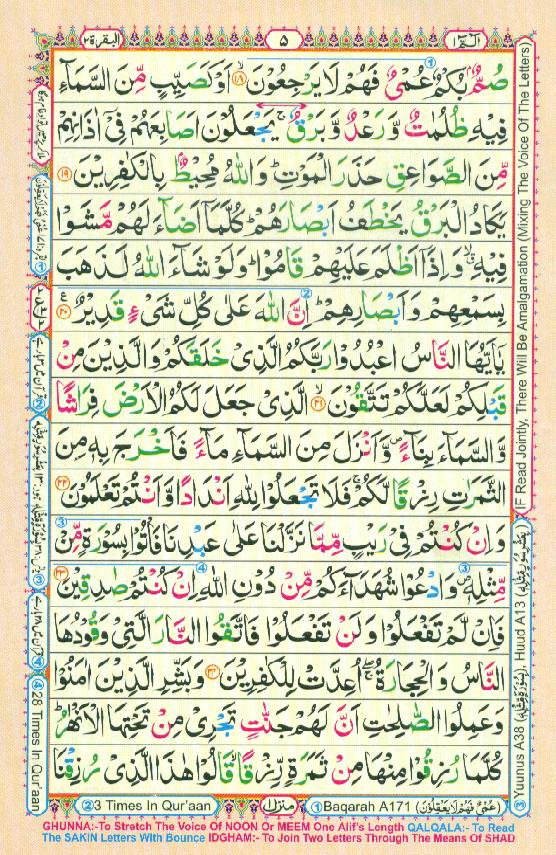 البقرة ٢
٥
الٓمّٓ ١
صُمٌّۢ بُكْمٌ عُمْیٌ فَهُمْ لَا یَرْجِعُوْنَ ۙ۝۱۸ اَوْ كَصَیِّبٍ مِّنَ السَّمَآءِ
فِیْهِ ظُلُمٰتٌ وَّ رَعْدٌ وَّ بَرْقٌ ۚ یَجْعَلُوْنَ اَصَابِعَهُمْ فِیْۤ اٰذَانِهِمْ
مِّنَ الصَّوَاعِقِ حَذَرَ الْمَوْتِ ؕ وَ اللّٰهُ مُحِیْطٌۢ بِالْكٰفِرِیْنَ ۝۱۹
یَكَادُ الْبَرْقُ یَخْطَفُ اَبْصَارَهُمْ ؕ كُلَّمَاۤ اَضَآءَ لَهُمْ مَّشَوْا
فِیْهِ ۙۗ وَ اِذَاۤ اَظْلَمَ عَلَیْهِمْ قَامُوْا ؕ وَ لَوْ شَآءَ اللّٰهُ لَذَهَبَ
بِسَمْعِهِمْ وَ اَبْصَارِهِمْ ؕ اِنَّ اللّٰهَ عَلٰی كُلِّ شَیْءٍ قَدِیْرٌ ۠۝۲۰
یٰۤاَیُّهَا النَّاسُ اعْبُدُوْا رَبَّكُمُ الَّذِیْ خَلَقَكُمْ وَ الَّذِیْنَ مِنْ
قَبْلِكُمْ لَعَلَّكُمْ تَتَّقُوْنَ ۙ۝۲۱ الَّذِیْ جَعَلَ لَكُمُ الْاَرْضَ فِرَاشًا
وَّ السَّمَآءَ بِنَآءً ۪ وَّ اَنْزَلَ مِنَ السَّمَآءِ مَآءً فَاَخْرَجَ بِهٖ مِنَ
الثَّمَرٰتِ رِزْقًا لَّكُمْ ۚ فَلَا تَجْعَلُوْا لِلّٰهِ اَنْدَادًا وَّ اَنْتُمْ تَعْلَمُوْنَ ۝۲۲
وَ اِنْ كُنْتُمْ فِیْ رَیْبٍ مِّمَّا نَزَّلْنَا عَلٰی عَبْدِنَا فَاْتُوْا بِسُوْرَةٍ مِّنْ
مِّثْلِهٖ ۪ وَ ادْعُوْا شُهَدَآءَكُمْ مِّنْ دُوْنِ اللّٰهِ اِنْ كُنْتُمْ صٰدِقِیْنَ ۝۲۳
فَاِنْ لَّمْ تَفْعَلُوْا وَ لَنْ تَفْعَلُوْا فَاتَّقُوا النَّارَ الَّتِیْ وَقُوْدُهَا
النَّاسُ وَ الْحِجَارَةُ ۖۚ اُعِدَّتْ لِلْكٰفِرِیْنَ ۝۲۴ وَ بَشِّرِ الَّذِیْنَ اٰمَنُوْا
وَ عَمِلُوا الصّٰلِحٰتِ اَنَّ لَهُمْ جَنّٰتٍ تَجْرِیْ مِنْ تَحْتِهَا الْاَنْهٰرُ ؕ
كُلَّمَا رُزِقُوْا مِنْهَا مِنْ ثَمَرَةٍ رِّزْقًا ۙ قَالُوْا هٰذَا الَّذِیْ رُزِقْنَا
IF Read Jointly, There Will Be Amalgamation (Mixing The Voice Of The Letters)
③ Yuunus A38 (بِسُوْرَةٍ مِّثْلِهٖ), Huud A13 (بِعَشْرِ سُوَرٍ مِّثْلِهٖ)
④ 28 Times In Qur'aan
② 3 Times In Qur'aan
منزل ١
① Baqarah A171 (عُمْیٌ فَهُمْ لَا یَعْقِلُوْنَ)
GHUNNA:-To Stretch The Voice Of NOON Or MEEM One Alif's Length QALQALA:- To Read
The SAKIN Letters With Bounce IDGHAM:- To Join Two Letters Through The Means Of SHAD